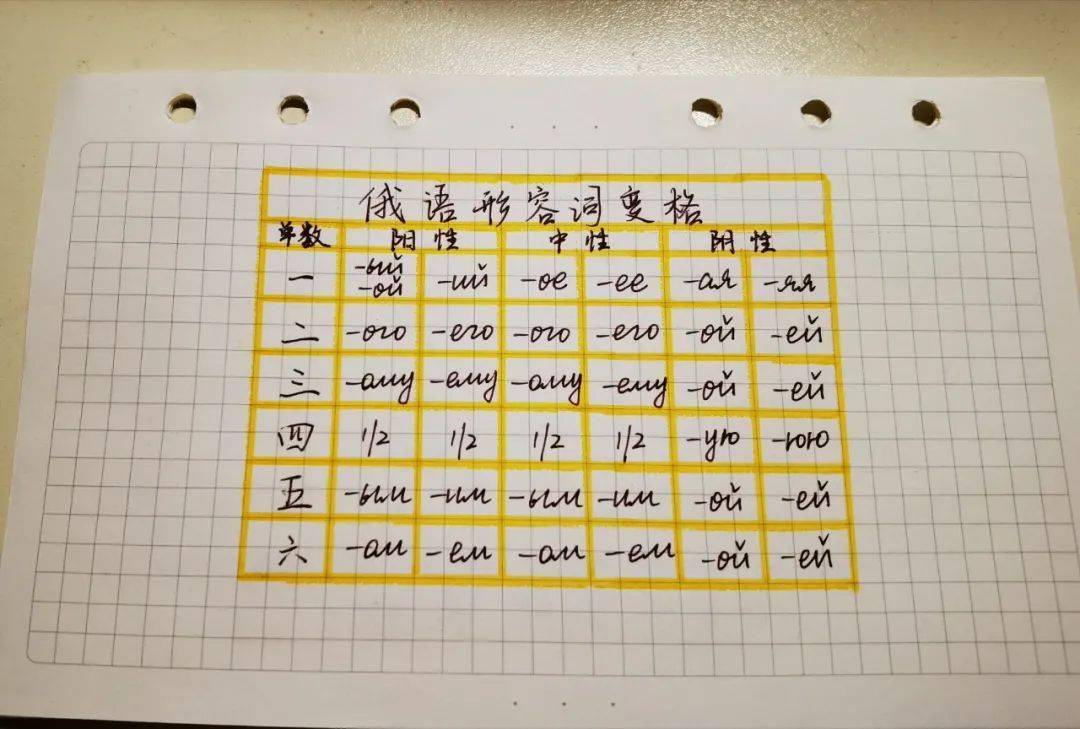 俄语形容词变格
单数 阳性 中性 阴性
一 -ый -ой -ий -ое -ее -ая -яя
二 -ого -его -ого -его -ой -ей
三 -ому -ему -ому -ему -ой -ей
四 1/2 1/2 1/2 1/2 -ую -юю
五 -ым -им -ым -им -ой -ей
六 -ом -ем -ом -ем -ой -ей